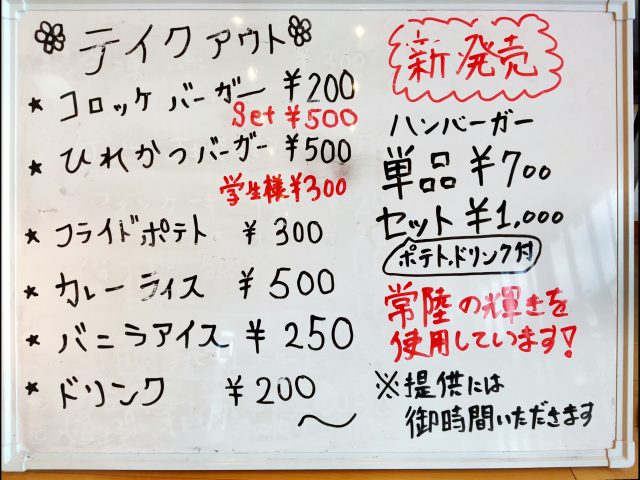 テイクアウト
★ コロッケバーガー ¥200
Set ¥500
★ ひれかつバーガー ¥500
学生様¥300
★ フライドポテト ¥300
★ カレーライス ¥500
★ バニラアイス ¥250
★ ドリンク ¥200〜
新発売
ハンバーガー
単品 ¥700
セット ¥1,000
ポテト,ドリンク付
常陸の輝きを
使用しています!
※提供には
御時間いただきます